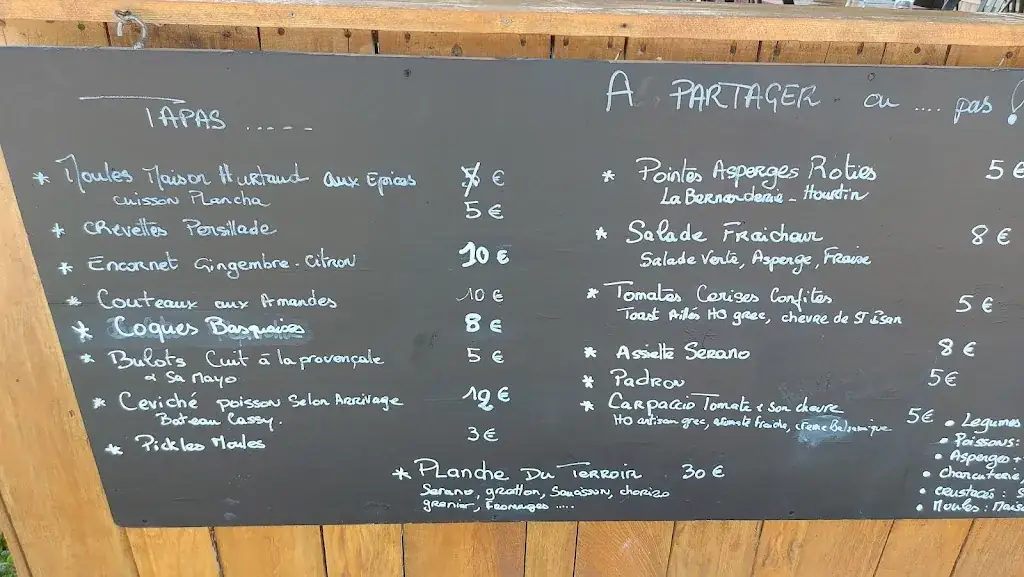 TAPAS .....
* Moules Maison Hurtaud aux Epices €
cuisson Plancha
* Crevettes Persillade 5 €
* Encornet Gingembre - Citron 10 €
* Couteaux aux Amandes 10 €
* Coques Basquaises 8 €
* Bulots Cuit à la provençale 5 €
& Sa Mayo
* Ceviché poisson Selon Arrivage 12 €
Bateau Cassy.
* Pickles Moules 3 €
A PARTAGER ou .... pas !
* Pointes Asperges Roties 5 €
La Bernanderie - Hourtin
* Salade Fraicheur 8 €
Salade Verte, Asperge, Fraise
* Tomates Cerises Confites 5 €
Toast Aillés HO grec, chevre de St Isan
* Assiette Serano 8 €
* Padron 5 €
* Carpaccio Tomate & son chevre 5 €
HO artisan grec, fraiche, crème Balsamique
* Planche Du Terroir 30 €
Serano, gratton, Saucisson, chorizo
grenier, Fromages .....
• Legumes
• Poissons:
• Asperges +
• charcuterie,
• crustacés : S
• Moules : Mais